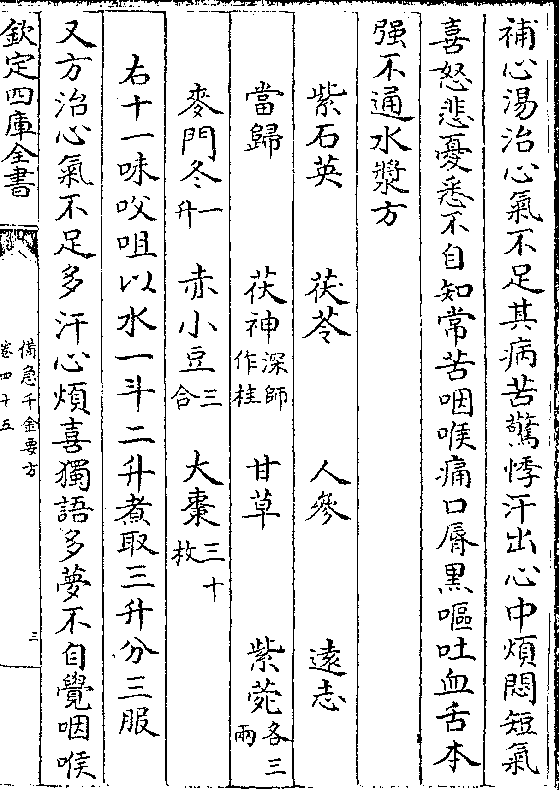 補心湯治心氣不足其病苦驚悸汗出心中煩悶短氣
喜怒悲憂悉不自知常苦咽喉痛口脣黑嘔吐血舌本
强不通水漿方
紫石英 茯苓 人參 遠志
當歸 茯神深師作桂 甘草 紫菀各三兩
麥門冬一升 赤小豆三合 大棗三十枚
右十一味㕮咀以水一斗二升煮取三升分三服
又方治心氣不足多汗心煩喜獨語多夢不自覺咽喉
欽定四庫全書
備急千金要方
卷四十五
三